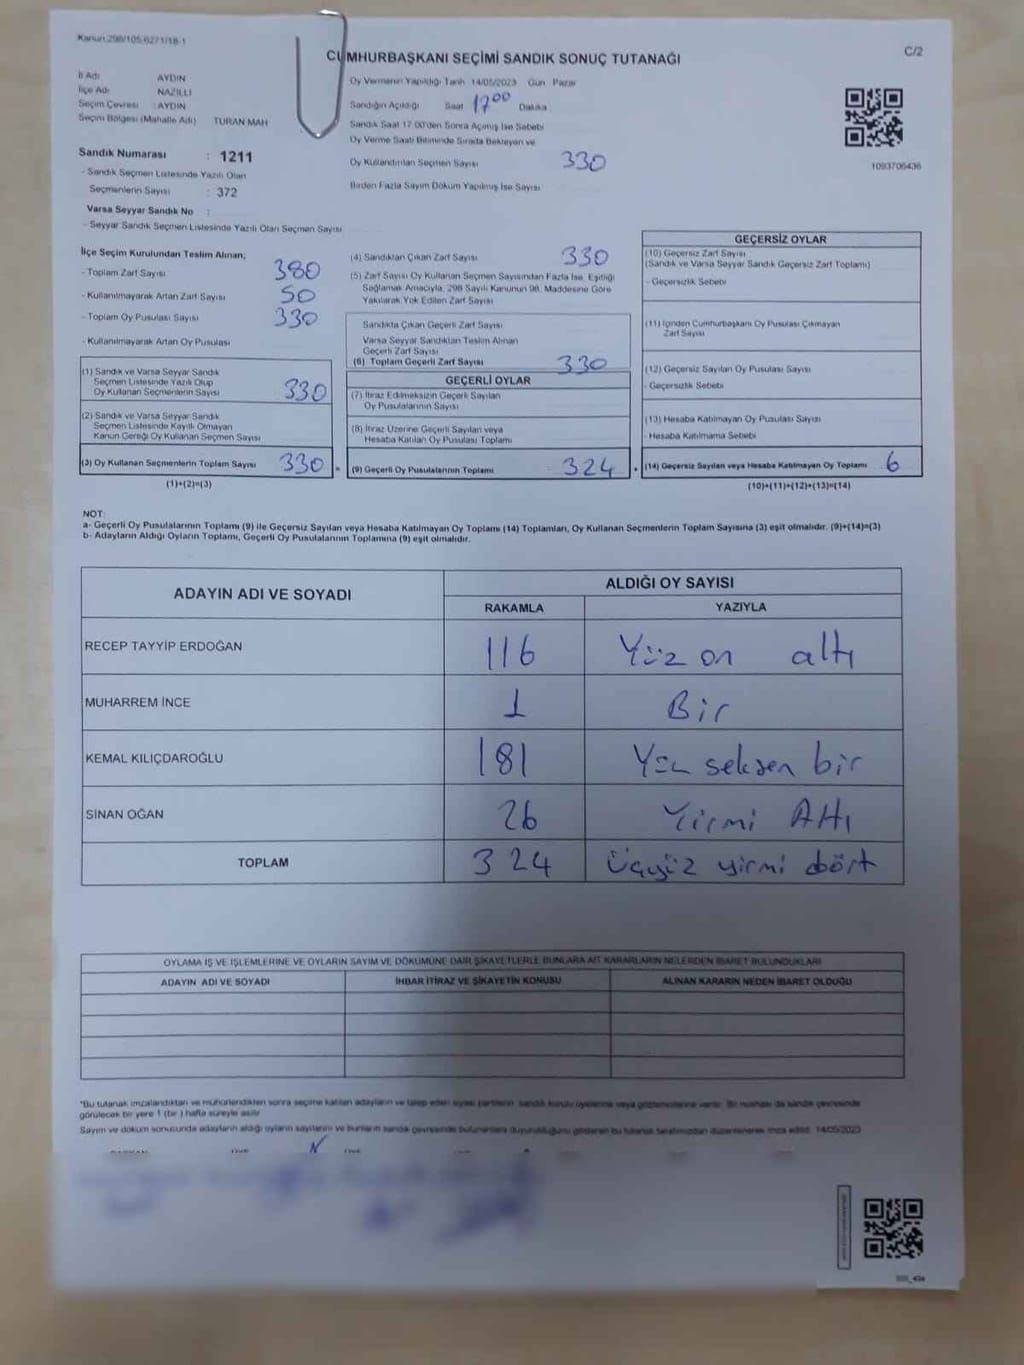 Kanun:298/105,6271/18-1
C/2
CUMHURBAŞKANI SEÇİMİ SANDIK SONUÇ TUTANAĞI
İl Adı AYDIN
İlçe Adı NAZİLLİ
Seçim Çevresi : AYDIN
Seçim Bölgesi (Mahalle Adı) TURAN MAH
Sandık Numarası : 1211
- Sandık Seçmen Listesinde Yazılı Olan
Seçmenlerin Sayısı : 372
Varsa Seyyar Sandık No :
- Seyyar Sandık Seçmen Listesinde Yazılı Olan Seçmen Sayısı
Oy Vermenin Yapıldığı Tarih 14/05/2023 Gün Pazar
Sandığın Açıldığı Saat 17 00 Dakika
Sandık Saat 17:00'den Sonra Açılmış İse Sebebi
Oy Verme Saati Bitiminde Sırada Bekleyen ve
Oy Kullandırılan Seçmen Sayısı 330
Birden Fazla Sayım Döküm Yapılmış İse Sayısı
1093706436
İlçe Seçim Kurulundan Teslim Alınan;
- Toplam Zarf Sayısı 380
- Kullanılmayarak Artan Zarf Sayısı 50
- Toplam Oy Pusulası Sayısı 330
- Kullanılmayarak Artan Oy Pusulası
(1) Sandık ve Varsa Seyyar Sandık
Seçmen Listesinde Yazılı Olup
Oy Kullanan Seçmenlerin Sayısı 330
(2) Sandık ve Varsa Seyyar Sandık
Seçmen Listesinde Kayıtlı Olmayan
Kanun Gereği Oy Kullanan Seçmen Sayısı
(3) Oy Kullanan Seçmenlerin Toplam Sayısı 330
(1)+(2)=(3)
(4) Sandıktan Çıkan Zarf Sayısı 330
(5) Zarf Sayısı Oy Kullanan Seçmen Sayısından Fazla İse, Eşitliği
Sağlamak Amacıyla, 298 Sayılı Kanunun 98. Maddesine Göre
Yakılarak Yok Edilen Zarf Sayısı
Sandıkta Çıkan Geçerli Zarf Sayısı
Varsa Seyyar Sandıktan Teslim Alınan
Geçerli Zarf Sayısı
(6) Toplam Geçerli Zarf Sayısı 330
GEÇERLİ OYLAR
(7) İtiraz Edilmeksizin Geçerli Sayılan
Oy Pusulalarının Sayısı
(8) İtiraz Üzerine Geçerli Sayılan veya
Hesaba Katılan Oy Pusulası Toplamı
(9) Geçerli Oy Pusulalarının Toplamı 324
GEÇERSİZ OYLAR
(10) Geçersiz Zarf Sayısı
(Sandık ve Varsa Seyyar Sandık Geçersiz Zarf Toplamı)
- Geçersizlik Sebebi
(11) İçinden Cumhurbaşkanı Oy Pusulası Çıkmayan
Zarf Sayısı
(12) Geçersiz Sayılan Oy Pusulası Sayısı
- Geçersizlik Sebebi
(13) Hesaba Katılmayan Oy Pusulası Sayısı
- Hesaba Katılmama Sebebi
(14) Geçersiz Sayılan veya Hesaba Katılmayan Oy Toplamı 6
(10)+(11)+(12)+(13)=(14)
NOT:
a- Geçerli Oy Pusulalarının Toplamı (9) ile Geçersiz Sayılan veya Hesaba Katılmayan Oy Toplamı (14) Toplamları, Oy Kullanan Seçmenlerin Toplam Sayısına (3) eşit olmalıdır. (9)+(14)=(3)
b- Adayların Aldığı Oyların Toplamı, Geçerli Oy Pusulalarının Toplamına (9) eşit olmalıdır.
ADAYIN ADI VE SOYADI ALDIĞI OY SAYISI
RAKAMLA YAZIYLA
RECEP TAYYİP ERDOĞAN 116 Yüz on altı
MUHARREM İNCE 1 Bir
KEMAL KILIÇDAROĞLU 181 Yüz seksen bir
SİNAN OĞAN 26 Yirmi Altı
TOPLAM 324 Üçyüz yirmi dört
OYLAMA İŞ VE İŞLEMLERİNE VE OYLARIN SAYIM VE DÖKÜMÜNE DAİR ŞİKAYETLERLE BUNLARA AİT KARARLARIN NELERDEN İBARET BULUNDUKLARI
ADAYIN ADI VE SOYADI İHBAR İTİRAZ VE ŞİKAYETİN KONUSU ALINAN KARARIN NEDEN İBARET OLDUĞU
*Bu tutanak imzalandıktan ve mühürlendikten sonra seçime katılan adayların ve talep eden siyasi partilerin sandık kurulu üyelerine veya gözlemcilerine verilir. Bir nüshası da sandık çevresinde
görülecek bir yere 1 (bir ) hafta süreyle asılır.
Sayım ve döküm sonucunda adayların aldığı oyların sayılarını ve bunların sandık çevresinde bulunanlara duyurulduğunu gösteren bu tutanak tarafımızdan düzenlenerek imza edildi. 14/05/2023